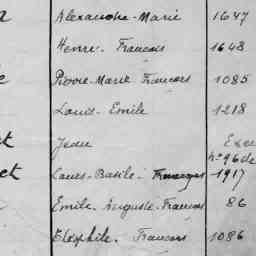 Alexandre-Marie 1647
Henri-Francois 1648
Pierre-Marie Francois 1085
Louis-Emile 1218
et Jean
No 96 de
et Louis-Basile-Francois 1917
Emile-Auguste-Francois 86
Théophile-Francois 1086